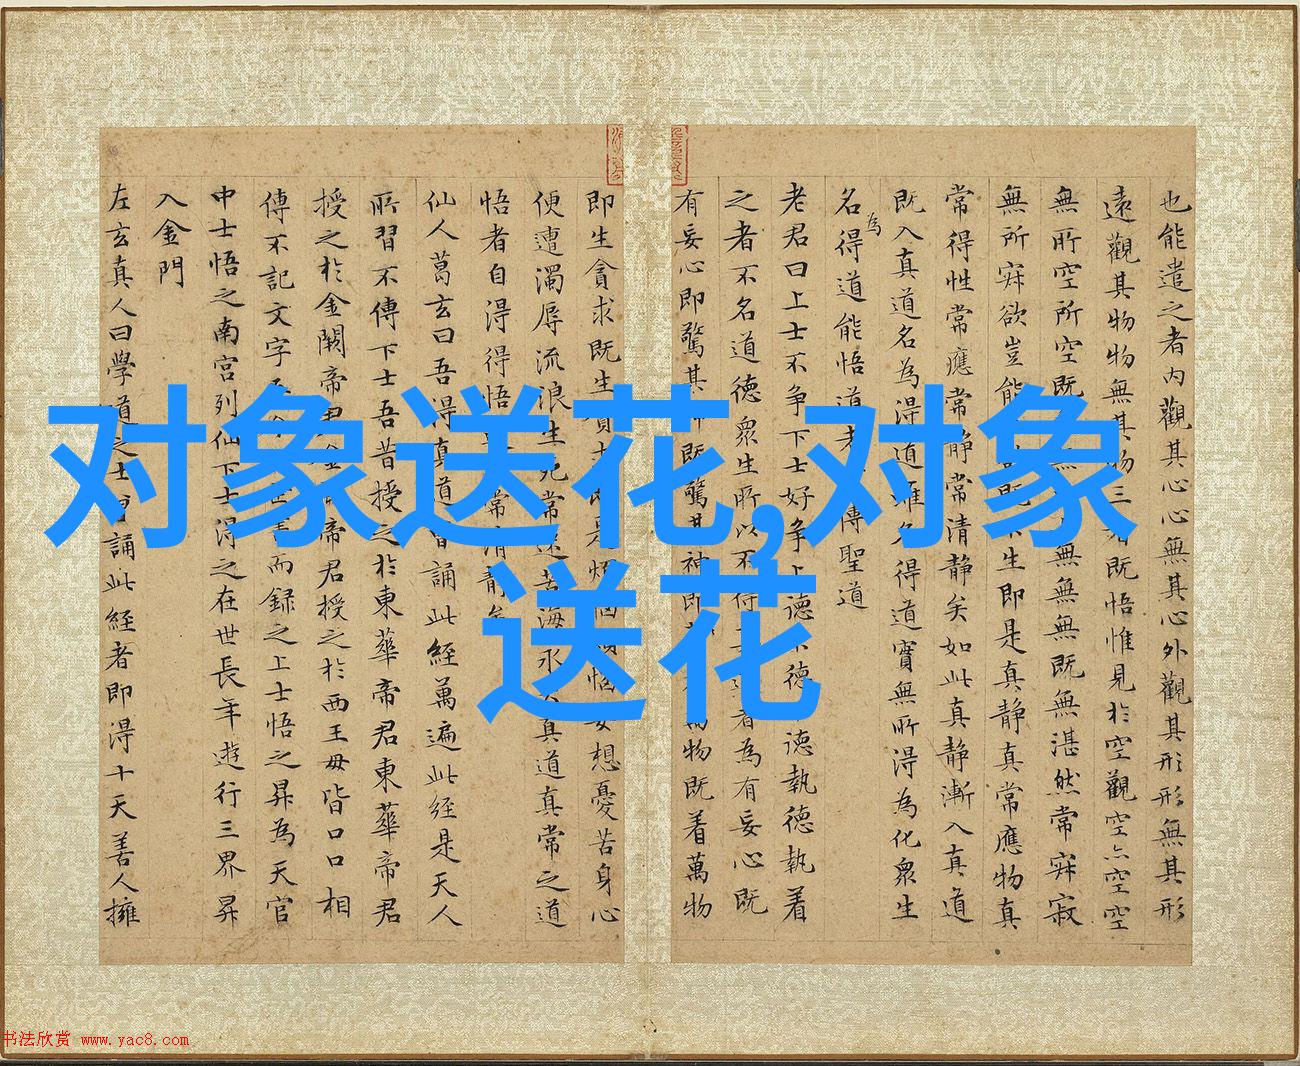 对象送花,对象
送花
也能遣之者内觀其心心無其心外觀其形形無其形
遠觀其物物無其物三者既悟惟見於空觀空亦空空
無所空所空既無無無無既無湛然常寂寂
無所寂欲豈能既生即是真静真常應物真
常得性常應常静常清静矣如此真静漸入真道
既入真道名為得道雖名得道實無所得為化衆生
名為得道能悟道者傳聖道
老君曰上士不争下士好争上德不德德執德執着
之者不名道德衆生所以不得者為有妄心既
有妄心即驚其神既驚其神即萬物既着萬物
即生貪求既生貪是煩惱妄想憂苦身心
便遭濁辱流浪生死常沉苦海永失真道真常之道
悟者自得得悟常清静矣
仙人葛玄曰吾得真道曾誦此經萬遍此經是天人
所習不傳下士吾昔授之於東華帝君東華帝君
授之於金闕帝君金帝君授之於西王母皆口口相
傳不記文字吾書而録之上士悟之昇為天官
中士悟之南宫列仙下士得之在世長年遊行三界昇
入金門
左玄真人曰學道之士誦此經者即得十天善人擁
书法欣赏 www.yac8.com